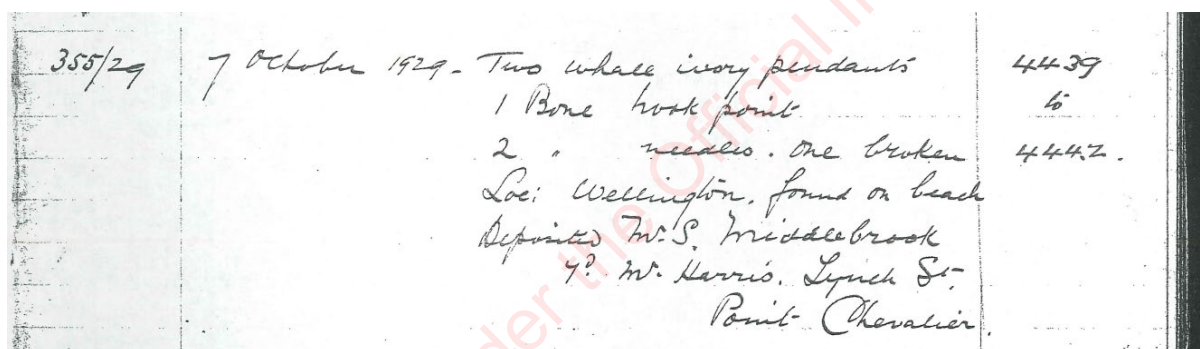 355/29 7 October 1929 - Two whale ivory pendants 4439
1 Bone hook point to
2 " needles. One broken 4442.
Loc: Wellington. found on beach
Deposited Mr S. Middlebrook
Mr Harris. Lynch St.
Point Chevalier.
der the Official In